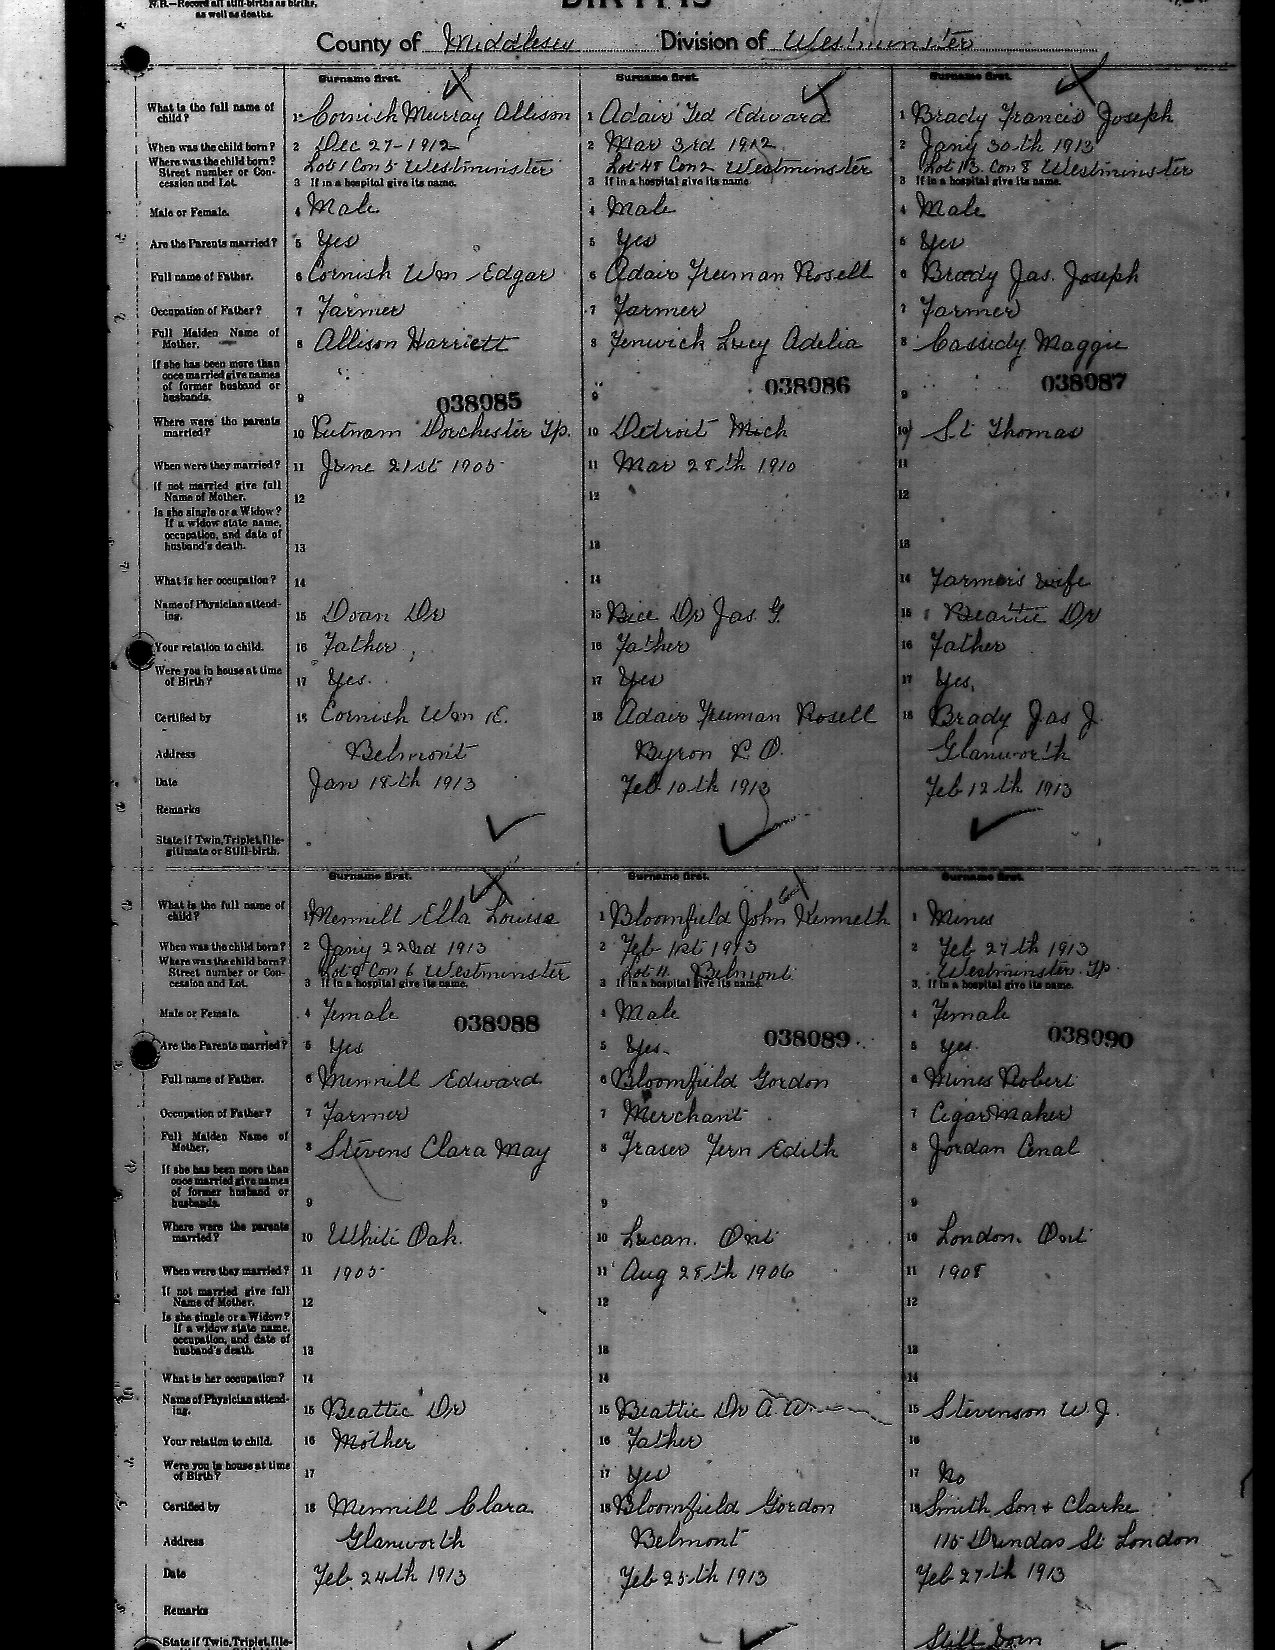 N.B.—Record all still-births as births,
as well as deaths.
BIRTHS
County of Middlesex Division of Westminster
Surname first. Surname first. Surname first.
What is the full name of child? 1 Cornish Murray Allison 1 Adair Ted Edward 1 Brady Francis Joseph
When was the child born? 2 Dec 27-1912 2 Mar 3rd 1912 2 Jany 30th 1913
Where was the child born? Street number or Concession and Lot. Lot 1 Con 5 Westminster Lot 48 Con 2 Westminster Lot 13 Con 8 Westminster
3 If in a hospital give its name. 3 If in a hospital give its name. 3 If in a hospital give its name.
Male or Female. 4 Male 4 Male 4 Male
Are the Parents married? 5 Yes 5 Yes 5 Yes
Full name of Father. 6 Cornish Wm Edgar 6 Adair Freeman Rosell 6 Brady Jas. Joseph
Occupation of Father? 7 Farmer 7 Farmer 7 Farmer
Full Maiden Name of Mother. 8 Allison Harriett 8 Fenwick Lucy Adelia 8 Cassidy Maggie
If she has been more than once married give names of former husband or husbands. 9 9 9
038085 038086 038087
Where were the parents married? 10 Putnam Dorchester Tp. 10 Detroit Mich 10 St Thomas
When were they married? 11 June 21st 1905 11 Mar 28th 1910 11
If not married give full Name of Mother. 12 12 12
Is she single or a Widow? If a widow state name, occupation, and date of husband's death. 13 13 13
What is her occupation? 14 14 14 Farmers wife
Name of Physician attending. 15 Doan Dr 15 Bice Dr Jas G. 15 Beattie Dr
Your relation to child. 16 Father 16 Father 16 Father
Were you in house at time of Birth? 17 Yes. 17 Yes 17 Yes,
Certified by 18 Cornish Wm E. 18 Adair Freeman Rosell 18 Brady Jas J.
Address Belmont Byron P.O. Glanworth
Date Jan 18th 1913 Feb 10th 1913 Feb 12th 1913
Remarks
State if Twin, Triplet, Illegitimate or Still-birth.
Surname first. Surname first. Surname first.
What is the full name of child? 1 Merrill Ella Louise 1 Bloomfield John Kenneth 1 Mines
When was the child born? 2 Jany 22nd 1913 2 Feb 1st 1913 2 Feb 27th 1913
Where was the child born? Street number or Concession and Lot. Lot 9 Con 6 Westminster Lot 11 Belmont Westminster Tp
3 If in a hospital give its name. 3 If in a hospital give its name. 3. If in a hospital give its name.
Male or Female. 4 Female 4 Male 4 Female
038088 038089 038090
Are the Parents married? 5 Yes 5 Yes. 5 Yes.
Full name of Father. 6 Merrill Edward 6 Bloomfield Gordon 6 Mines Robert
Occupation of Father? 7 Farmer 7 Merchant 7 Cigar Maker
Full Maiden Name of Mother. 8 Stevens Clara May 8 Fraser Fern Edith 8 Jordan
If she has been more than once married give names of former husband or husbands. 9 9 9
Where were the parents married? 10 White Oak. 10 Lucan. Ont 10 London. Ont
When were they married? 11 1905 11 Aug 28th 1906 11 1908
If not married give full Name of Mother. 12 12 12
Is she single or a Widow? If a widow state name, occupation, and date of husband's death. 13 13 13
What is her occupation? 14 14 14
Name of Physician attending. 15 Beattie Dr 15 Beattie Dr A. W 15 Stevenson W. J.
Your relation to child. 16 Mother 16 Father 16
Were you in house at time of Birth? 17 17 Yes 17 No
Certified by 18 Merrill Clara 18 Bloomfield Gordon 18 Smith Son & Clarke
Address Glanworth Belmont 115 Dundas St London
Date Feb. 24th 1913 Feb 25th 1913 Feb 27th 1913
Remarks
State if Twin, Triplet, Ille- Still born